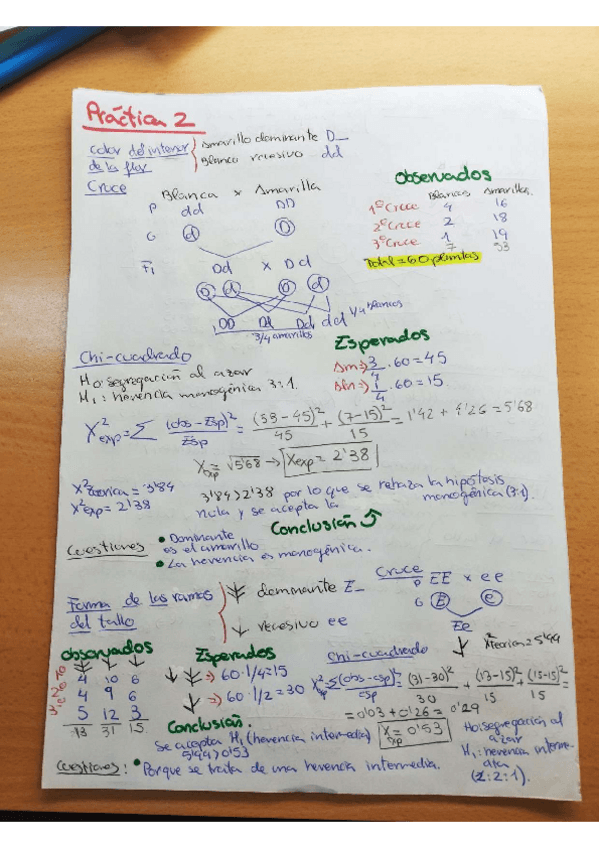 Práctica 2
Color del interior de la flor
Amarillo dominante D_
Blanco recesivo dd
Cruce
Blanca x Amarilla
P dd DD
G d D
F1 Dd x Dd
D d D d
DD Dd Dd dd 1/4 blancos
3/4 amarillos
Observados
Blancas Amarillas
1º Cruce 4 16
2º Cruce 2 18
3º Cruce 1 19
7 53
Total = 60 plantas
Esperados
Am => 3/4 · 60 = 45
Bln => 1/4 · 60 = 15
Chi-cuadrado
Ho: segregación al azar
H1: herencia monogénica 3:1.
X²exp = Σ (obs - Esp)²/Esp = (53 - 45)²/45 + (7-15)²/15 = 1'42 + 4'26 = 5'68
Xexp = √5'68 → Xexp = 2'38
X²teorica = 3'84
X²exp = 2'38
3'84 > 2'38 por lo que se rehaza la hipótesis
nula y se acepta la monogénica (3:1).
Conclusión
Cuestiones
• Dominante es el amarillo
• La herencia es monogénica.
Forma de las ramas del tallo
dominante E_
recesivo ee
Cruce
P EE x ee
G E e
Ee
Observados
4 10 6
4 9 6
5 12 3
13 31 15
Esperados
=> 60·1/4=15
=> 60·1/2=30
Chi-cuadrado
X²teorica = 5'99
X²=Σ(obs-esp)²/esp = (31-30)²/30 + (13-15)²/15 + (15-15)²/15 =
= 0'03 + 0'26 = 0'29
Xexp = 0'53
Ho: segregación al azar
H1: herencia intermedia
(2:2:1).
Conclusión.
Se acepta H1 (herencia intermedia)
5'99 > 0'53
Cuestiones: • Porque se trata de una herencia intermedia.